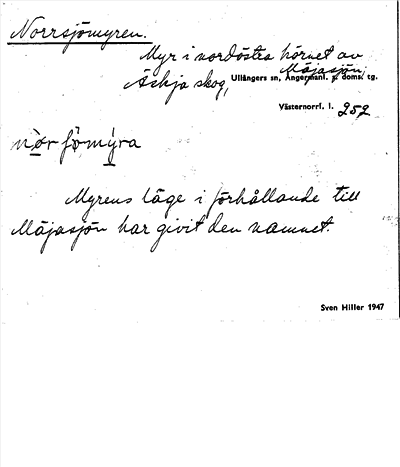 Norrsjömyren.
Myr i nordöstra hörnet av
Mäjasjön,
Äskja skog, Ullångers sn, Ångermanl. s. doms. tg.
Västernorrl. l. 252
Myrens läge i förhållande till
Mäjasjön har givit den namnet.
Sven Hiller 1947